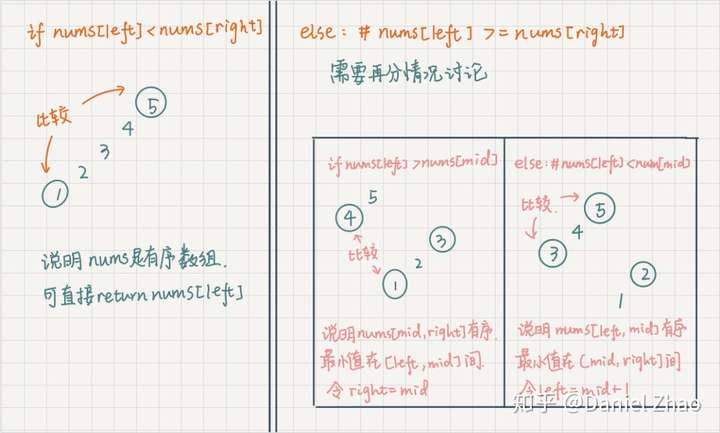 if nums[left]<nums[right]
比较
5
4
3
2
1
说明 nums是有序数组.
可直接return nums[left]
else: # nums[left] >= nums[right]
需要再分情况讨论
if nums[left] >nums[mid]
5
4
3
比较
2
1
说明nums[mid,right]有序.
最小值在[left,mid]间.
令 right=mid
else:#nums[left]<num[mid]
比较.
5
4
3
2
1
说明 nums[left,mid]有序
最小值在(mid,right]间
令left=mid+1
知乎 @Daniel Zhao